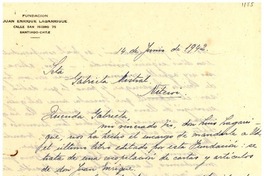 FUNDACION
JUAN ENRIQUE LAGARRIGUE
CALLE SAN ISIDRO 75
SANTIAGO-CHILE
14 de Junio de 1942
Sta
Gabriela Mistral
Niteroi
Querida Gabriela:
mi venerado tío, don Luis Lagarri-
gue, nos ha hecho el encargo de mandarle a Ud.
el último libro editado por esta Fundación: se
trata de una recopilación de cartas y artículos
de don Juan Enrique